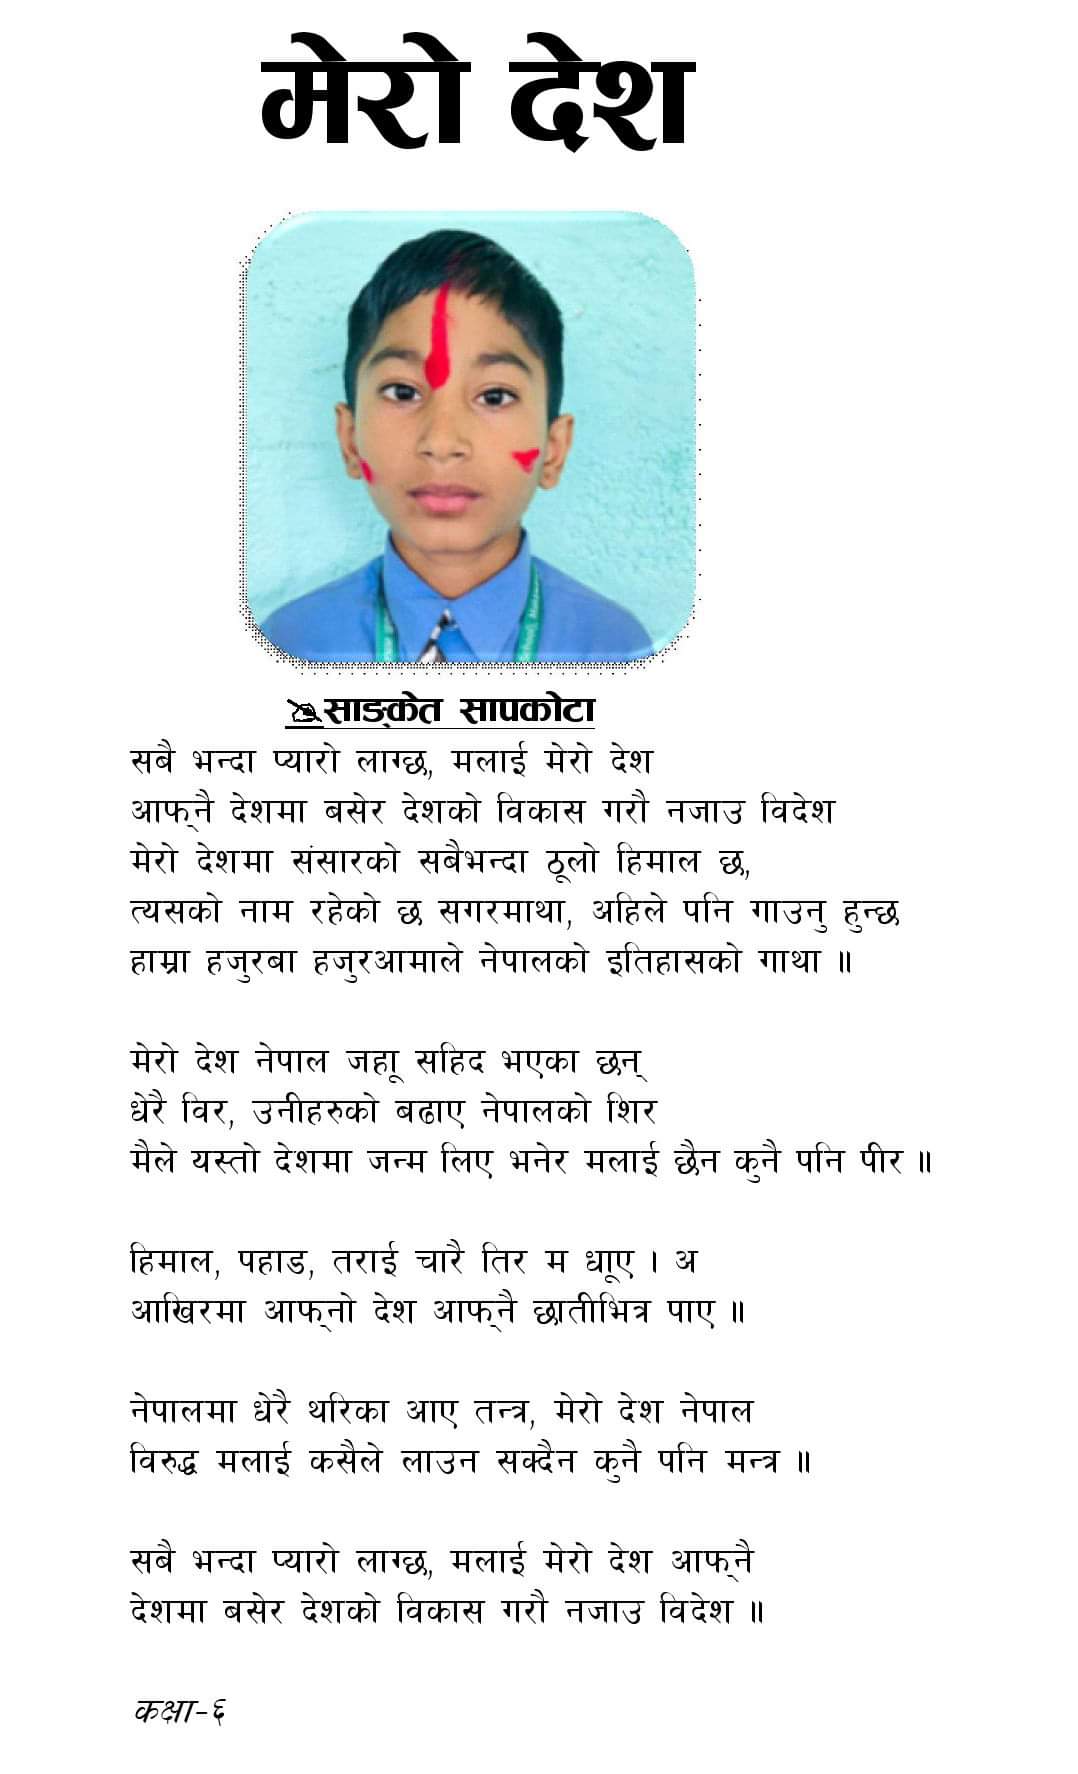 मेरो देश
साङ्केत सापकोटा
सबै भन्दा प्यारो लाग्छ, मलाई मेरो देश
आफ्‌नै देशमा बसेर देशको विकास गरौ नजाउ विदेश
मेरो देशमा संसारको सबैभन्दा ठूलो हिमाल छ,
त्यसको नाम रहेको छ सगरमाथा, अहिले पनि गाउनु हुन्छ
हाम्रा हजुरबा हजुरआमाले नेपालको इतिहासको गाथा ॥
मेरो देश नेपाल जहाू सहिद भएका छन्
धेरै विर, उनीहरुको बढाए नेपालको शिर
मैले यस्तो देशमा जन्म लिए भनेर मलाई छैन कुनै पनि पीर ॥
हिमाल, पहाड, तराई चारै तिर म धाूए । अ
आखिरमा आफ्‌नो देश आफ्‌नै छातीभित्र पाए ॥
नेपालमा धेरै थरिका आए तन्त्र, मेरो देश नेपाल
विरुद्ध मलाई कसैले लाउन सक्दैन कुनै पनि मन्त्र ॥
सबै भन्दा प्यारो लाग्छ, मलाई मेरो देश आफ्‌नै
देशमा बसेर देशको विकास गरौ नजाउ विदेश ॥
कक्षा-६